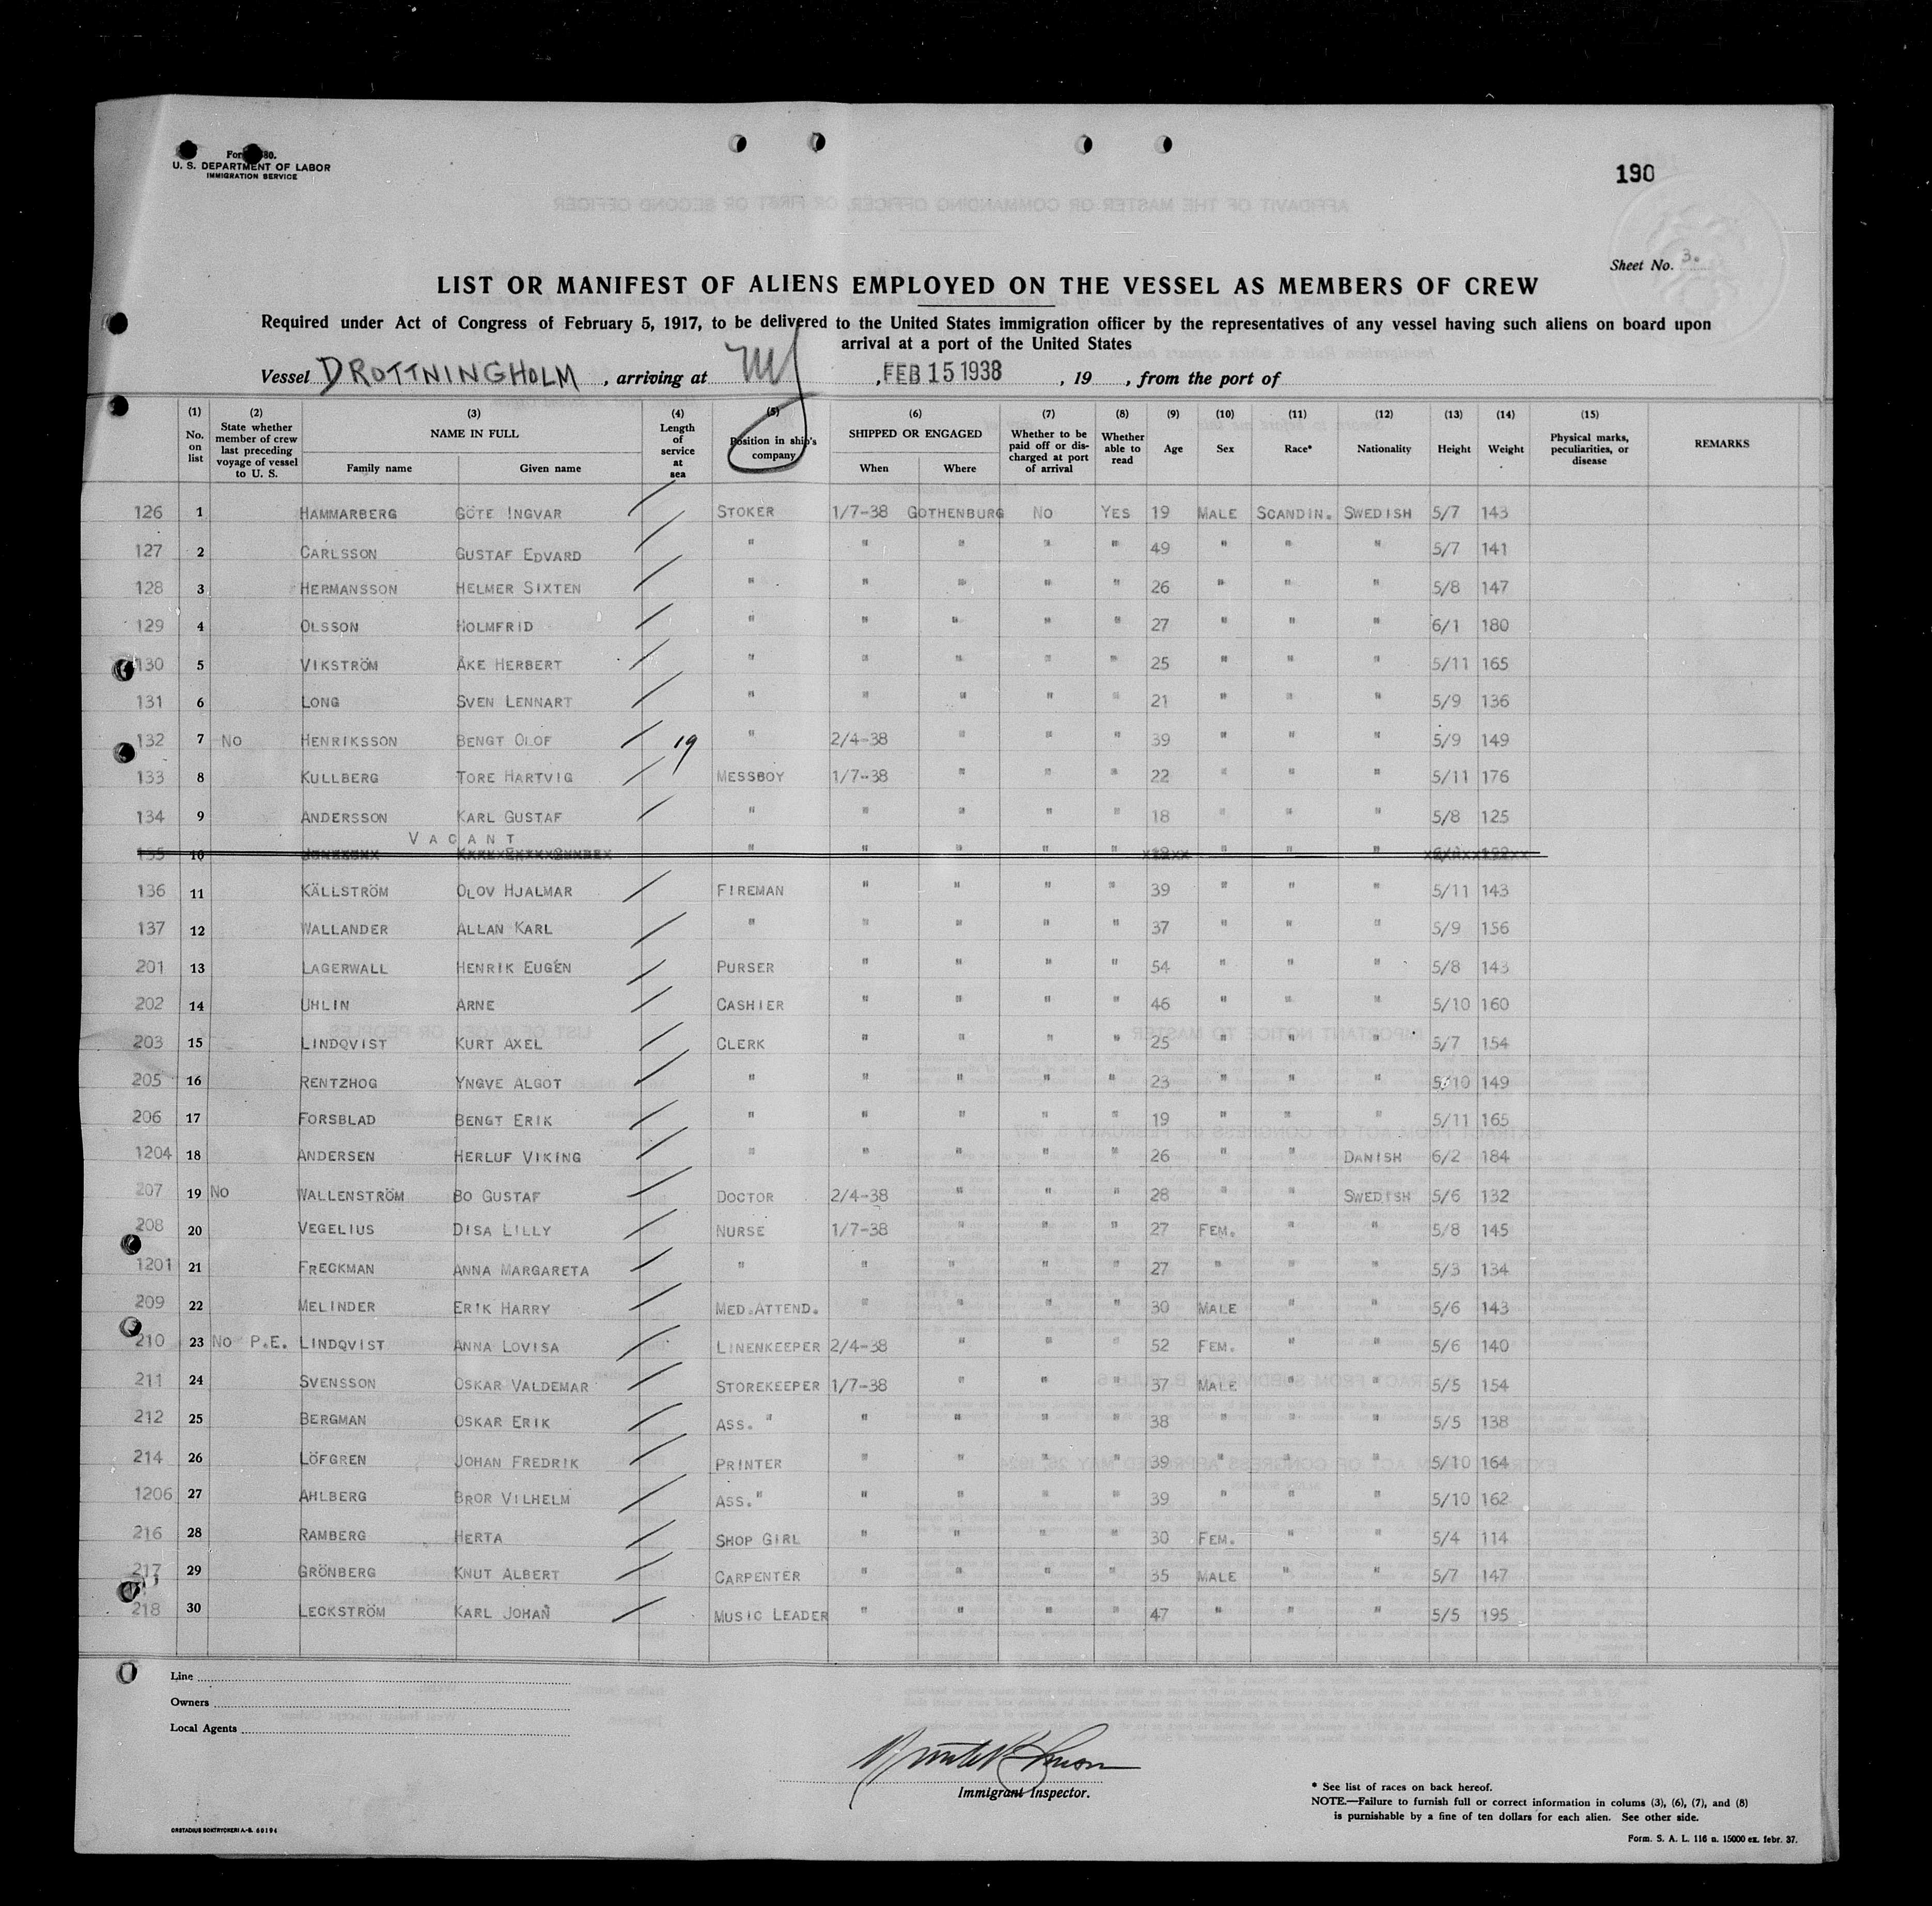 Form 680.
U. S. DEPARTMENT OF LABOR
IMMIGRATION SERVICE
190
Sheet No. 3.
LIST OR MANIFEST OF ALIENS EMPLOYED ON THE VESSEL AS MEMBERS OF CREW
Required under Act of Congress of February 5, 1917, to be delivered to the United States immigration officer by the representatives of any vessel having such aliens on board upon
arrival at a port of the United States
Vessel DROTTNINGHOLM, arriving at NY, FEB 15 1938, 19 , from the port of
(1) No. on list (2) State whether member of crew last preceding voyage of vessel to U. S. (3) NAME IN FULL Family name Given name (4) Length of service at sea (5) Position in ship's company (6) SHIPPED OR ENGAGED When Where (7) Whether to be paid off or discharged at port of arrival (8) Whether able to read (9) Age (10) Sex (11) Race* (12) Nationality (13) Height (14) Weight (15) Physical marks, peculiarities, or disease REMARKS
126 1 HAMMARBERG GÖTE INGVAR STOKER 1/7-38 GOTHENBURG NO YES 19 MALE SCANDIN. SWEDISH 5/7 143
127 2 CARLSSON GUSTAF EDVARD " " " " " 49 " " " 5/7 141
128 3 HERMANSSON HELMER SIXTEN " " " " " 26 " " " 5/8 147
129 4 OLSSON HOLMFRID " " " " " 27 " " " 6/1 180
130 5 VIKSTRÖM ÅKE HERBERT " " " " " 25 " " " 5/11 165
131 6 LONG SVEN LENNART " " " " " 21 " " " 5/9 136
132 7 NO HENRIKSSON BENGT OLOF 19 " 2/4-38 " " " 39 " " " 5/9 149
133 8 KULLBERG TORE HARTVIG MESSBOY 1/7-38 " " " 22 " " " 5/11 176
134 9 ANDERSSON KARL GUSTAF " " " " " 18 " " " 5/8 125
VACANT
135 10 " " " " " " " "
136 11 KÄLLSTRÖM OLOV HJALMAR FIREMAN " " " " 39 " " " 5/11 143
137 12 WALLANDER ALLAN KARL " " " " " 37 " " " 5/9 156
201 13 LAGERWALL HENRIK EUGEN PURSER " " " " 54 " " " 5/8 143
202 14 UHLIN ARNE CASHIER " " " " 46 " " " 5/10 160
203 15 LINDQVIST KURT AXEL CLERK " " " " 25 " " " 5/7 154
205 16 RENTZHOG YNGVE ALGOT " " " " " 23 " " " 5/10 149
206 17 FORSBLAD BENGT ERIK " " " " " 19 " " " 5/11 165
1204 18 ANDERSEN HERLUF VIKING " " " " " 26 " " DANISH 6/2 184
207 19 NO WALLENSTRÖM BO GUSTAF DOCTOR 2/4-38 " " " 28 " " SWEDISH 5/6 132
208 20 VEGELIUS DISA LILLY NURSE 1/7-38 " " " 27 FEM. " " 5/8 145
1201 21 FRECKMAN ANNA MARGARETA " " " " " 27 " " " 5/3 134
209 22 MELINDER ERIK HARRY MED.ATTEND. " " " " 30 MALE " " 5/6 143
210 23 NO P.E. LINDQVIST ANNA LOVISA LINENKEEPER 2/4-38 " " " 52 FEM. " " 5/6 140
211 24 SVENSSON OSKAR VALDEMAR STOREKEEPER 1/7-38 " " " 37 MALE " " 5/5 154
212 25 BERGMAN OSKAR ERIK ASS. " " " " " 38 " " " 5/5 138
214 26 LÖFGREN JOHAN FREDRIK PRINTER " " " " 39 " " " 5/10 164
1206 27 AHLBERG BROR VILHELM ASS. " " " " " 39 " " " 5/10 162
216 28 RAMBERG HERTA SHOP GIRL " " " " 30 FEM. " " 5/4 114
217 29 GRÖNBERG KNUT ALBERT CARPENTER " " " " 35 MALE " " 5/7 147
218 30 LECKSTRÖM KARL JOHAN MUSIC LEADER " " " " 47 " " " 5/5 195
Line
Owners
Local Agents
Immigrant Inspector.
* See list of races on back hereof.
NOTE.—Failure to furnish full or correct information in colums (3), (6), (7), and (8)
is punishable by a fine of ten dollars for each alien. See other side.
ORSTADIUS BOKTRYCKERI A.-B. 60194
Form. S. A. L. 116 n. 15000 ex. febr. 37.